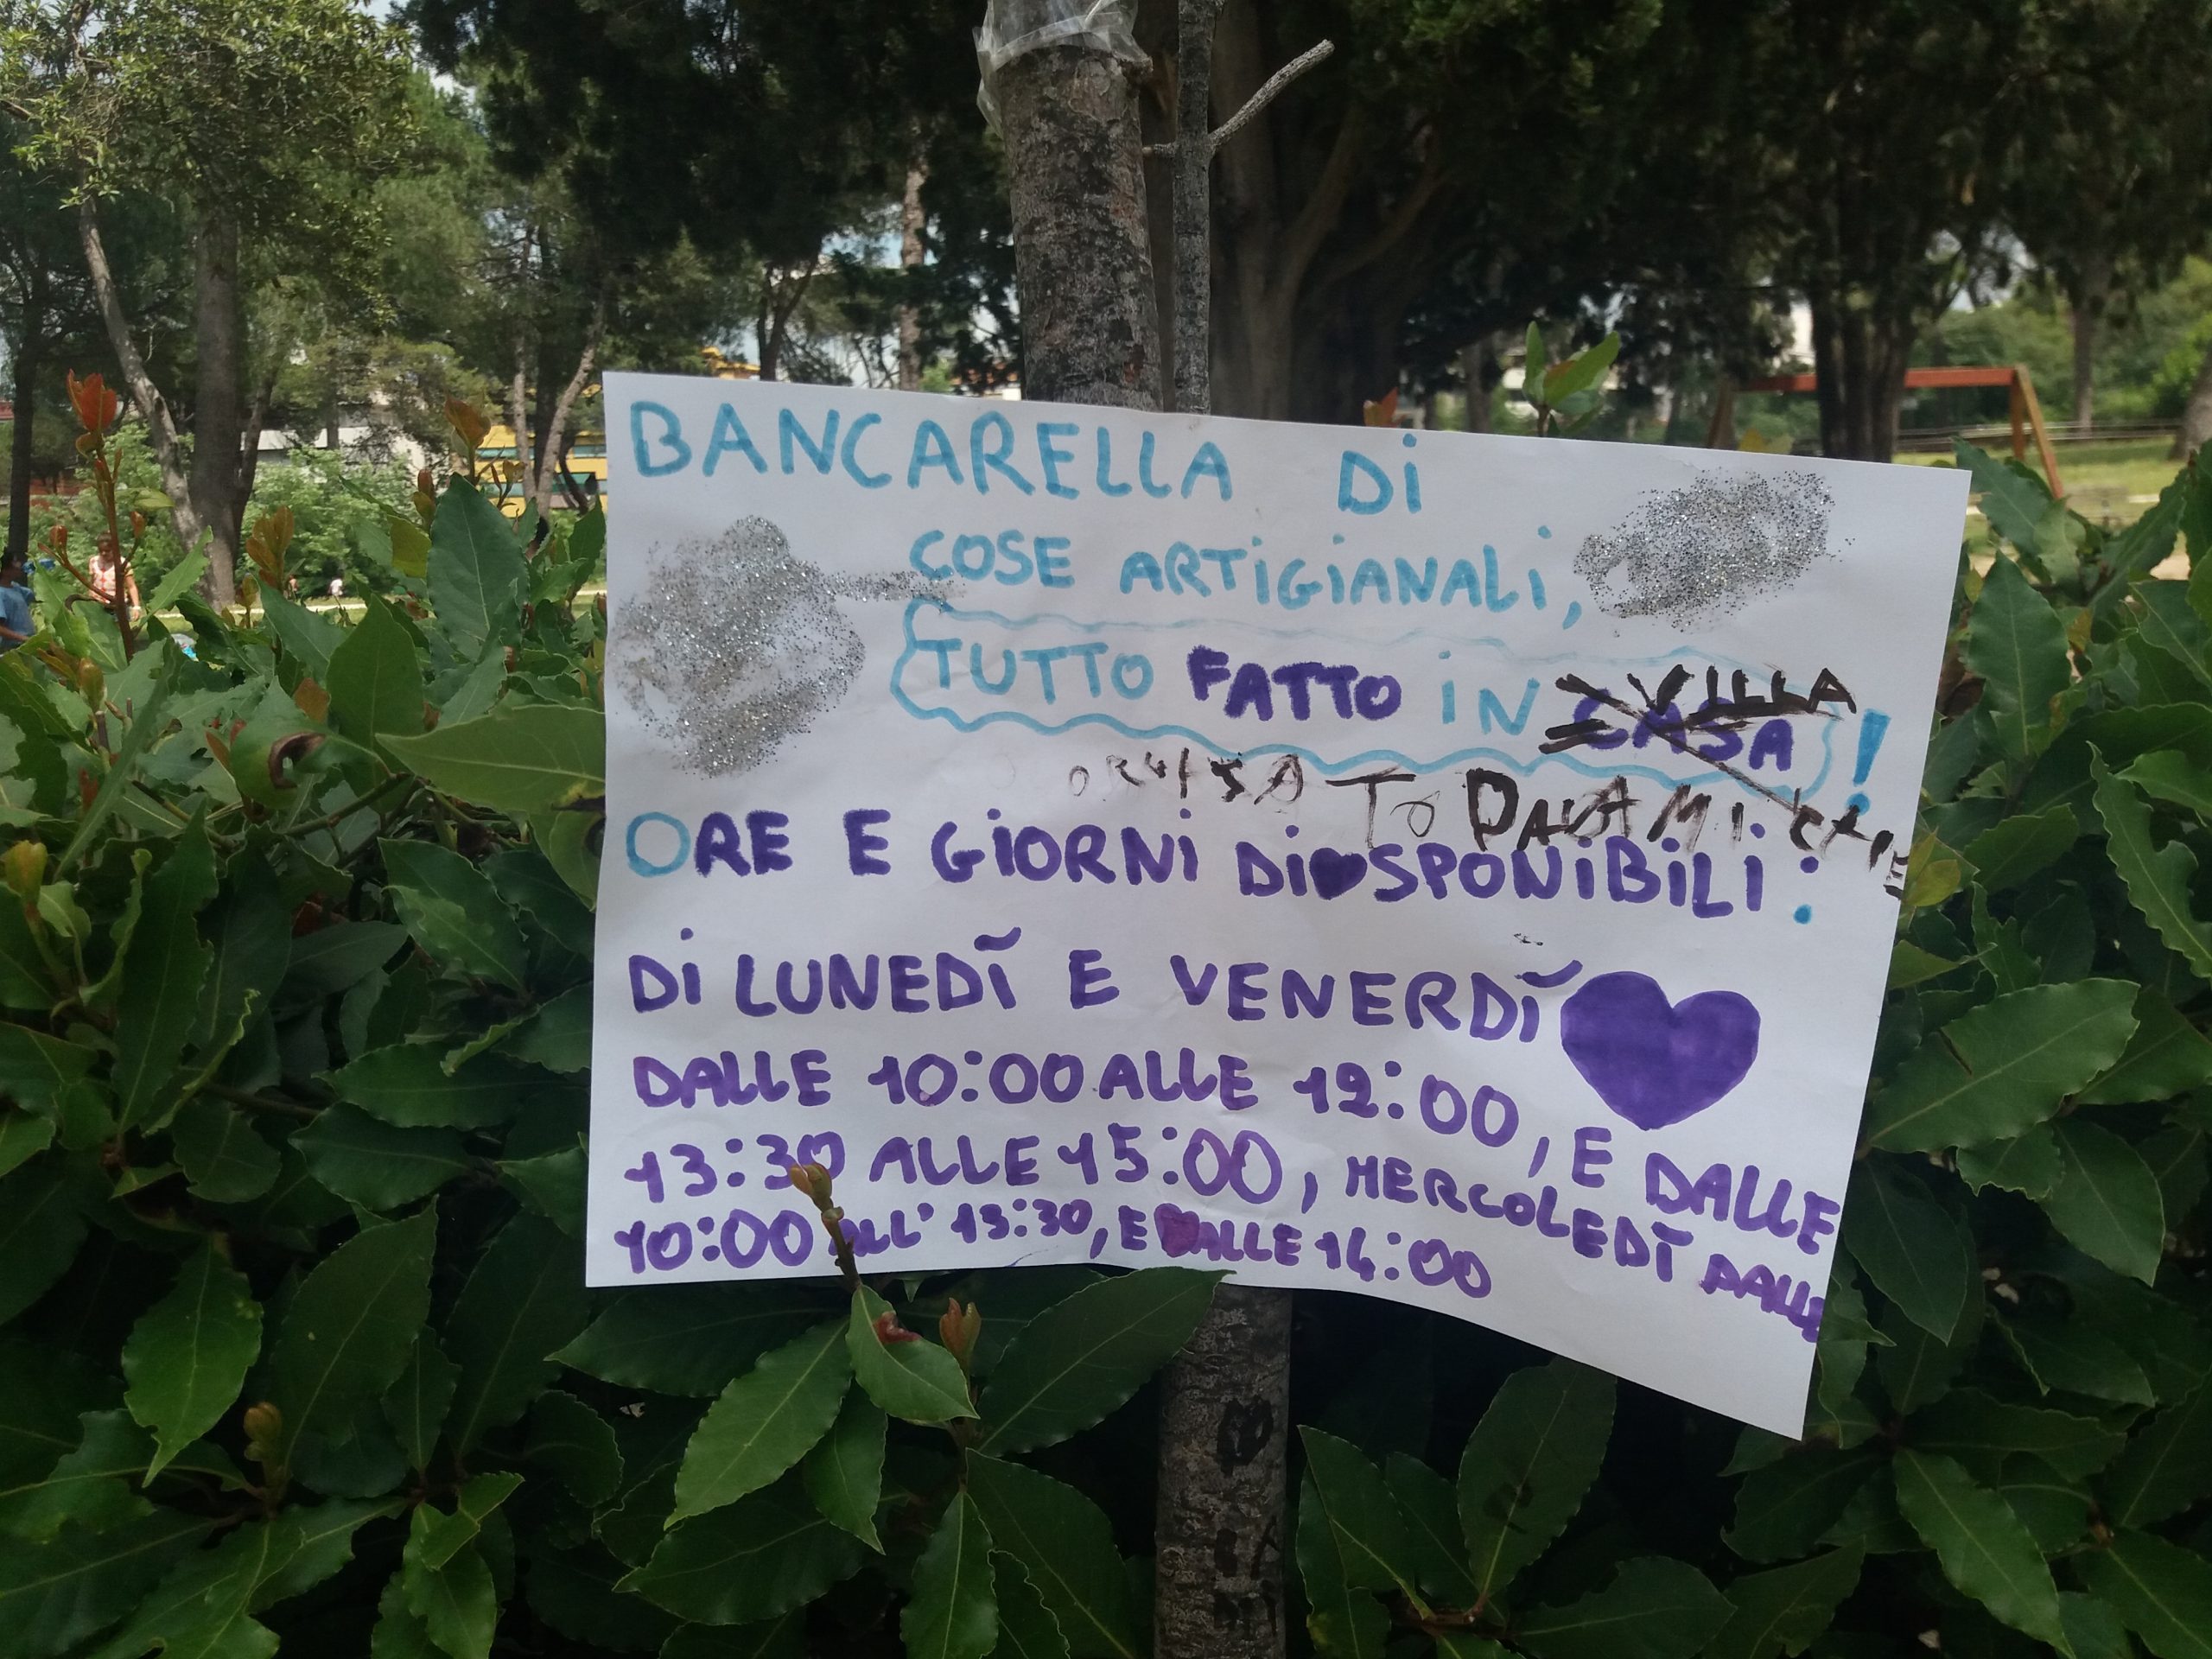 BANCARELLA DI
COSE ARTIGIANALI,
TUTTO FATTO IN CASA!
VILLA
ORE E GIORNI DISPONIBILI:
DI LUNEDÌ E VENERDÌ
DALLE 10:00 ALLE 12:00, E DALLE
13:30 ALLE 15:00, MERCOLEDÌ DALLE
10:00 ALL' 13:30, E DALLE 14:00